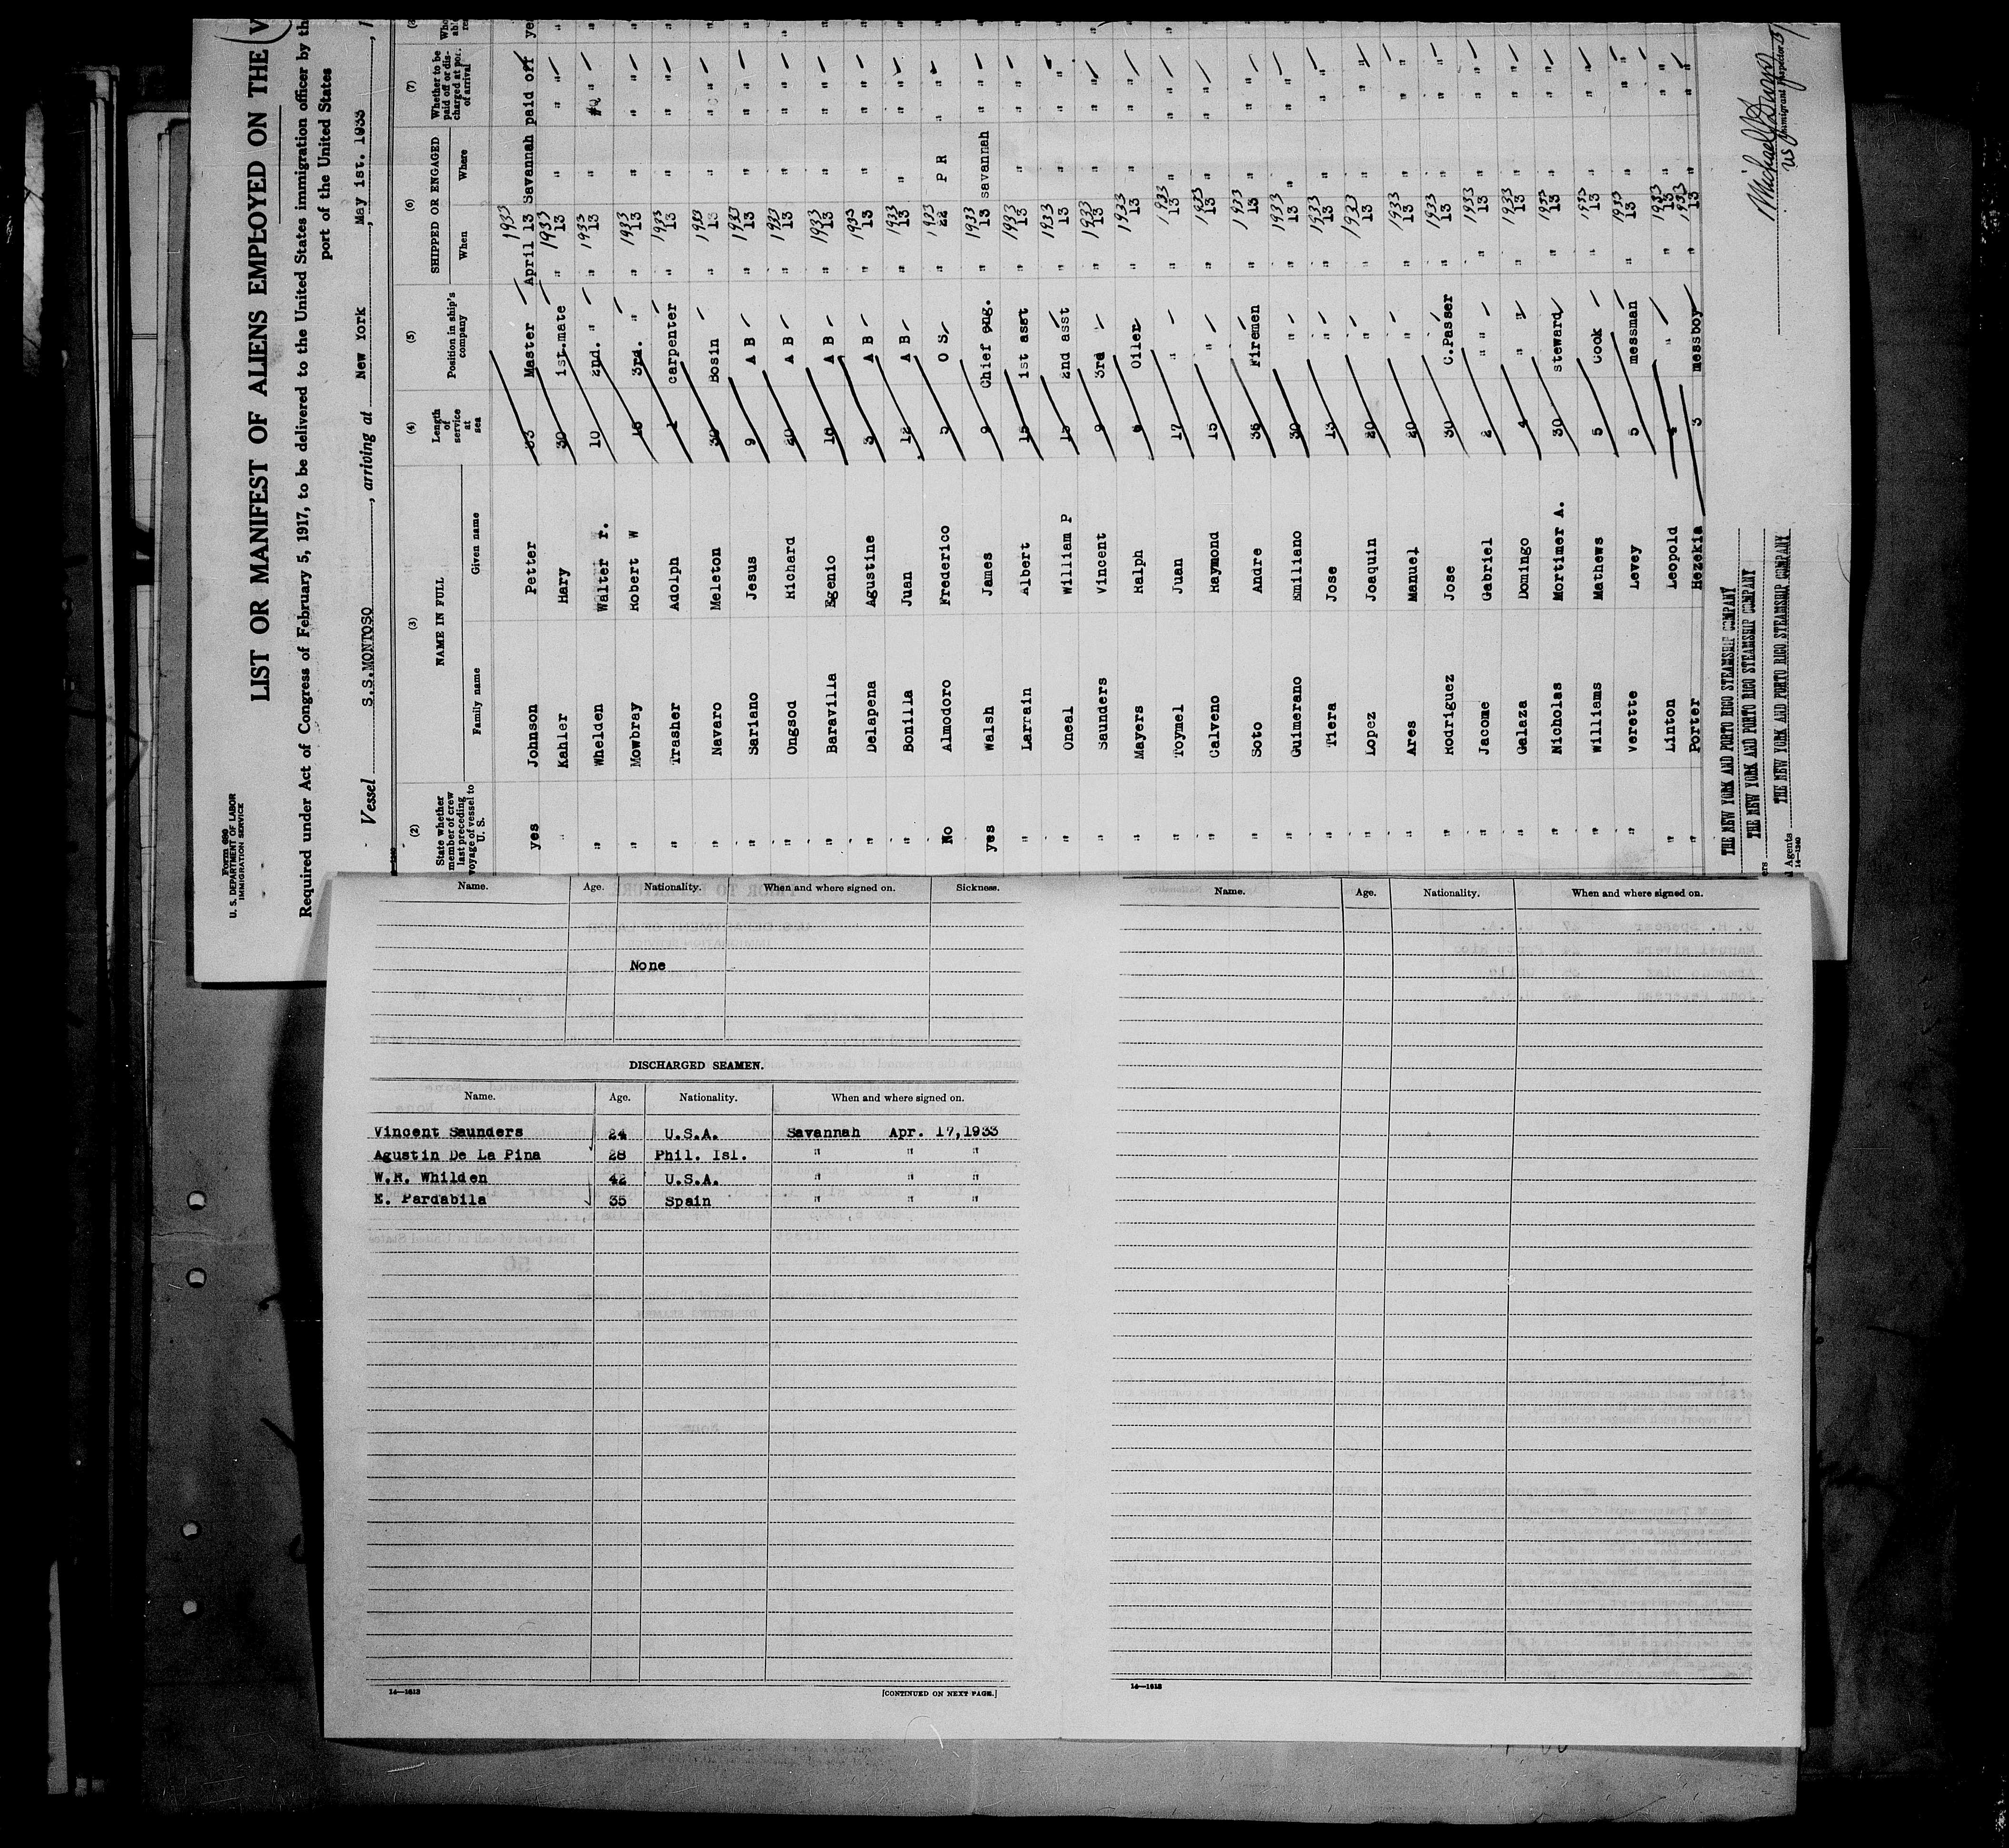 Form 689
U. S. DEPARTMENT OF LABOR
IMMIGRATION SERVICE
LIST OR MANIFEST OF ALIENS EMPLOYED ON THE V
Required under Act of Congress of February 5, 1917, to be delivered to the United States immigration officer by th
port of the United States
Vessel S.S.MONTOSO, arriving at New York, May 1st. 1933, 1
(2) (3) (4) (5) (6) (7)
State whether member of crew last preceding voyage of vessel to U. S.
NAME IN FULL
Family name Given name
Length of service at sea
Position in ship's company
SHIPPED OR ENGAGED
When Where
Whether to be paid off or discharged at port of arrival
yes Johnson Petter Master April 13 1933 Savannah paid off ye
" Kahler Hary 30 1st.mate " 13 1933 " " "
" Whelden Walter 10 2nd. " " 13 1933 " "
" Mowbray Robert W 3rd. " " 13 1933 " " "
" Trasher Adolph carpenter " 13 1933 " " "
" Navaro Meleton 30 Bosin " 13 1933 " " "
" Sariano Jesus 9 A B " 13 1933 " " "
" Ongsod Richard 20 A B " 13 1933 " " "
" Baravilla Egenio A B " 13 1933 " " "
" Delapena Agustine 3 A B " 13 1933 " " "
" Bonilla Juan 12 A B " 13 1933 " " "
No Almodoro Frederico 5 O S " 22 1933 P R " "
yes Walsh James 9 Chief eng. " 13 1933 savannah " "
" Larrain Albert 15 1st asst " 13 1933 " " "
" Oneal William P 15 2nd asst " 13 1933 " " "
" Saunders Vincent 9 3rd " 13 1933 " " "
" Mayers Ralph Oiler " 13 1933 " " "
" Toymel Juan 17 " " 13 1933 " " "
" Calveno Raymond 15 " " 13 1933 " " "
" Soto Andre 36 Firemen " 13 1933 " " "
" Guimerano Emiliano 30 " " 13 1933 " " "
" Tiera Jose 13 " " 13 1933 " " "
" Lopez Joaquin 20 " " 13 1933 " " "
" Ares Manuel 20 " " 13 1933 " " "
" Rodriguez Jose 30 C.Passer " 13 1933 " " "
" Jacome Gabriel 2 " " " 13 1933 " " "
" Galaza Domingo 4 " " " 13 1933 " " "
" Nicholas Mortimer A. 30 steward " 13 1933 " " "
" Williams Mathews 5 Cook " 13 1933 " " "
" Verette Levey 5 messman " 13 1933 " " "
" Linton Leopold " " 13 1933 " " "
" Porter Hezekia 3 messboy " 13 1933 " " "
THE NEW YORK AND PORTO RICO STEAMSHIP COMPANY
THE NEW YORK AND PORTO RICO STEAMSHIP COMPANY
THE NEW YORK AND PORTO RICO STEAMSHIP COMPANY
Agents
14—1240
US Immigrant Inspector
Name. Age. Nationality. When and where signed on. Sickness.
None
DISCHARGED SEAMEN.
Name. Age. Nationality. When and where signed on.
Vincent Saunders 24 U.S.A. Savannah Apr. 17,1933
Agustin De La Pina 28 Phil. Isl. " " "
W.R. Whilden 42 U.S.A. " " "
E. Pardabila 35 Spain " " "
14—1613
[CONTINUED ON NEXT PAGE.]
Name. Age. Nationality. When and where signed on.
14—1613